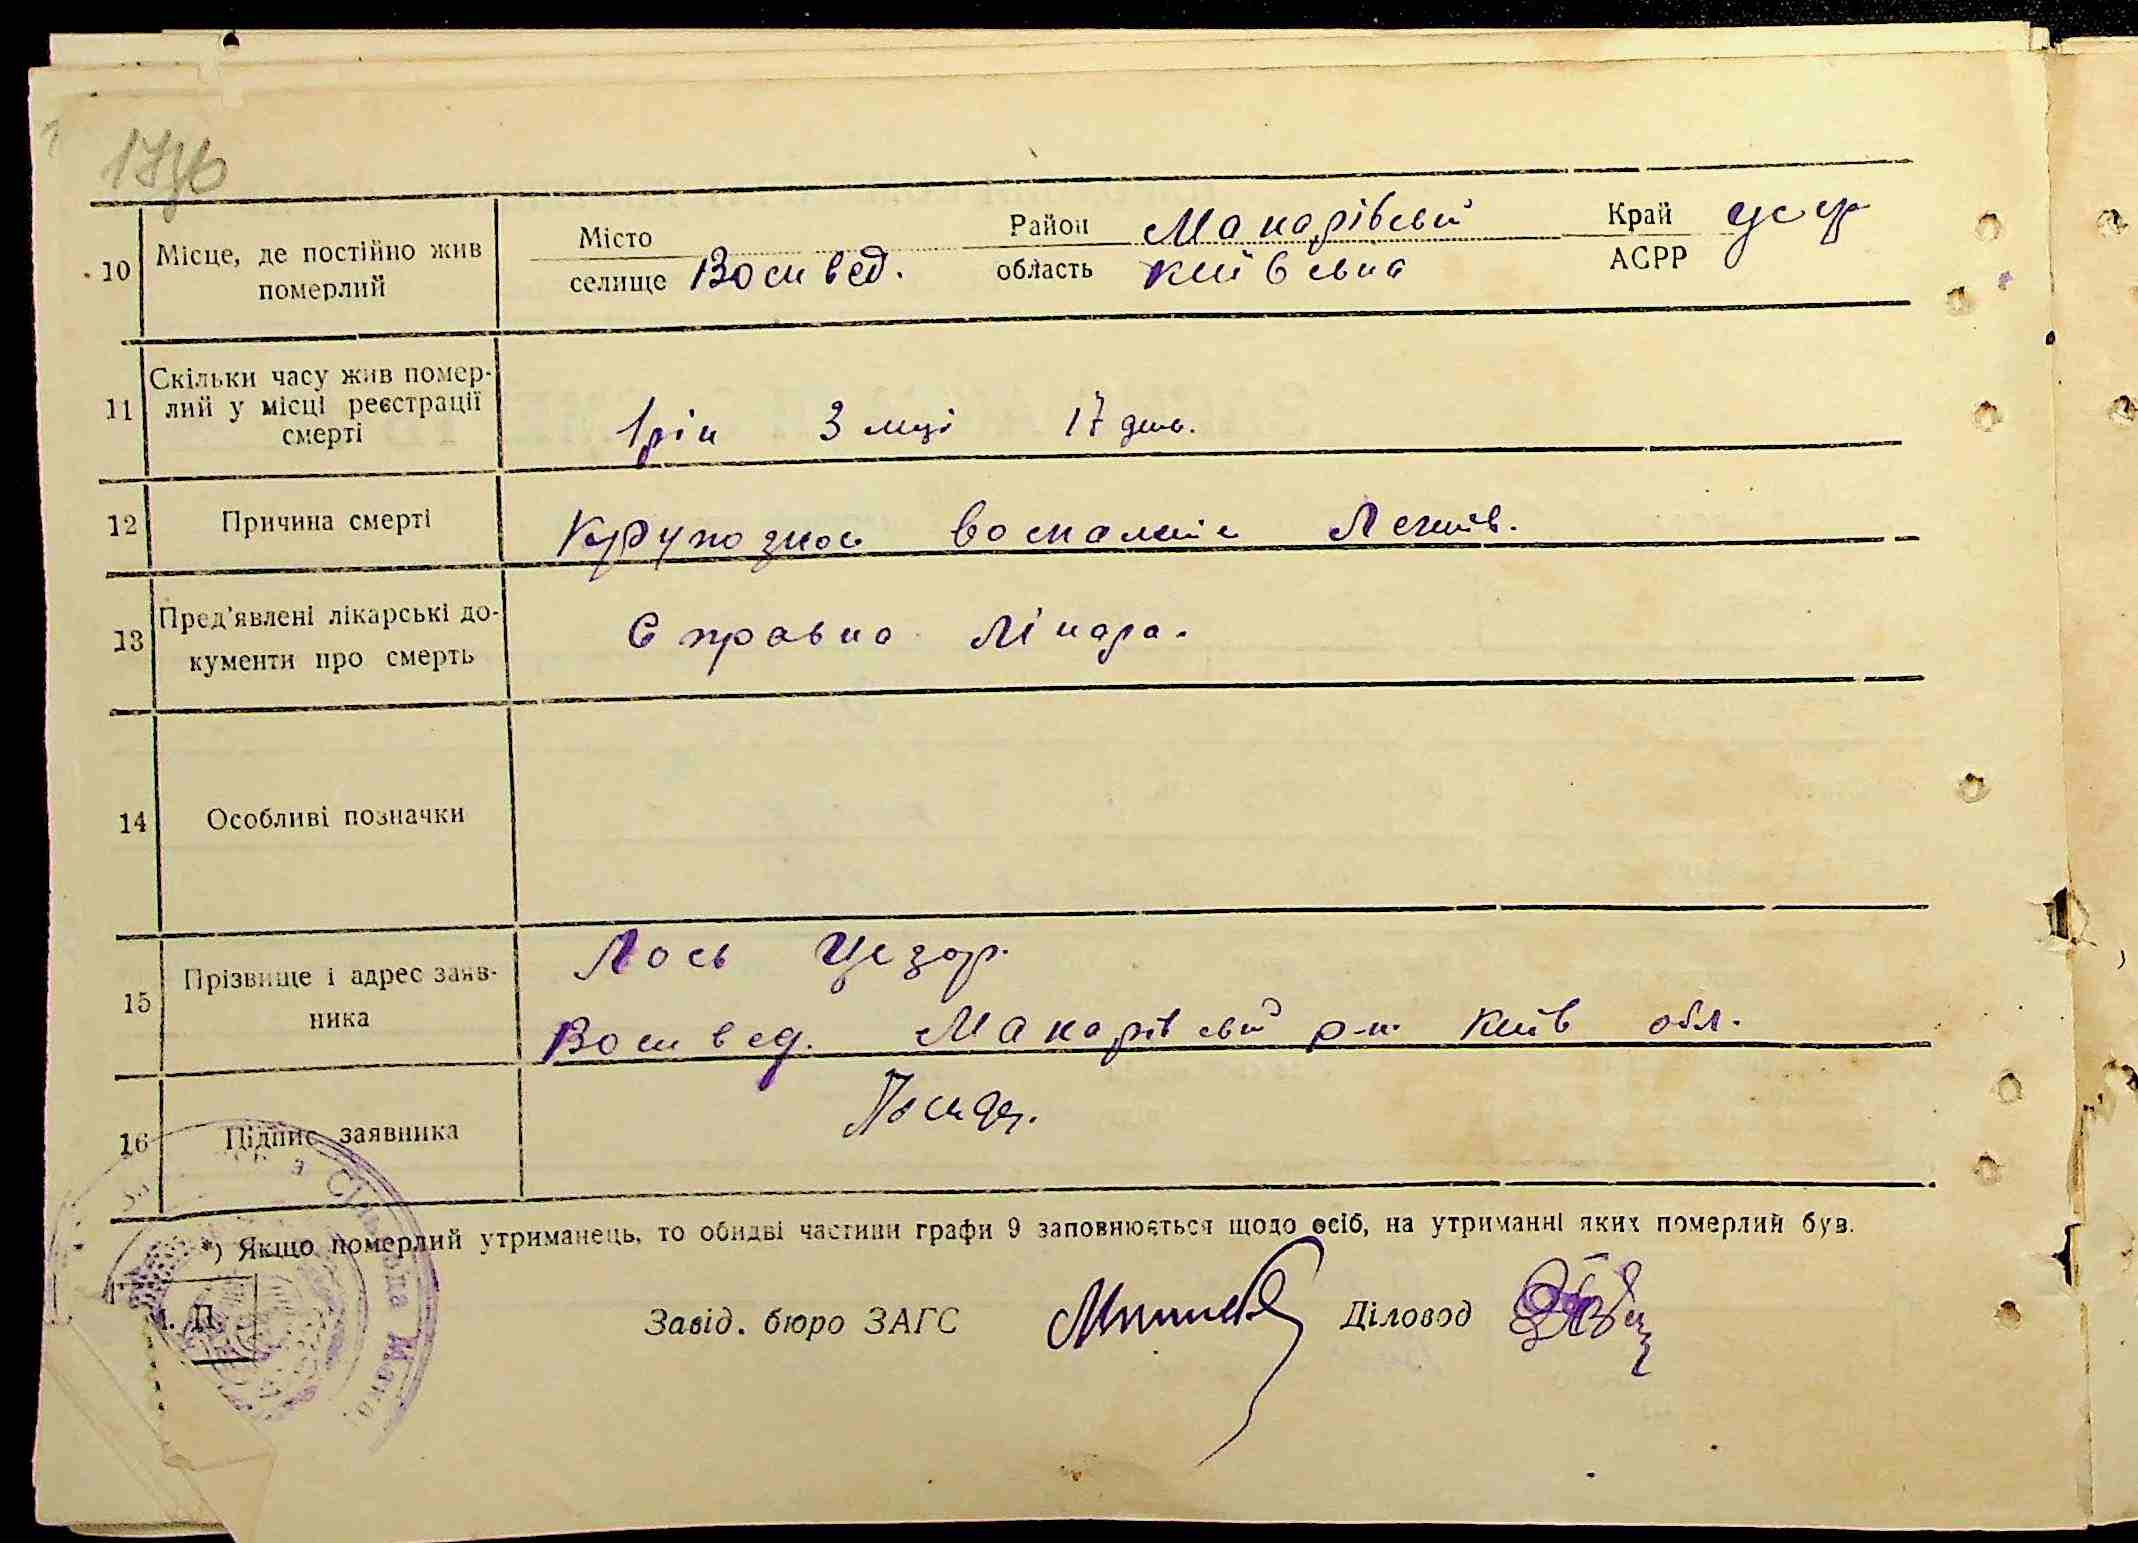 10 Місце, де постійно жив померлий
Місто
селище
Район Макарівсьий
область Київсьна
Край УСРР
АСРР
11 Скільки часу жив помер-
лий у місці реєстрації
смерті
1рік 3 мці 17 днів.
12 Причина смерті
Крупозное воспаленіе Легків.
13 Пред'явлені лікарські до-
кументи про смерть
Справка лікара.
14 Особливі позначки
15 Прізвище і адрес заяв-
ника
Лось Цезар.
Макарівсьий р-н Київ обл.
16 Підпис заявника
*) Якщо померлий утриманець, то обидві частини графи 9 заповнюється щодо осіб, на утриманні яких померлий був.
М. П.
Завід. бюро ЗАГС
Діловод